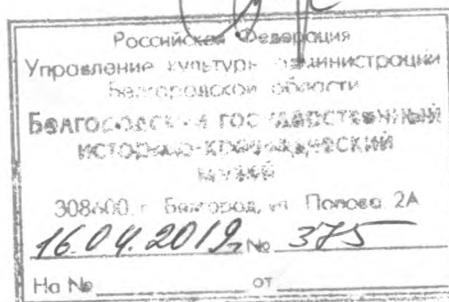 Российская Федерация
Управление культуры администрации
Белгородской области
Белгородский государственный
историко-краеведческий
музей
308600, г. Белгород, ул. Попова, 2А
16.04.2019г № 375
На № от